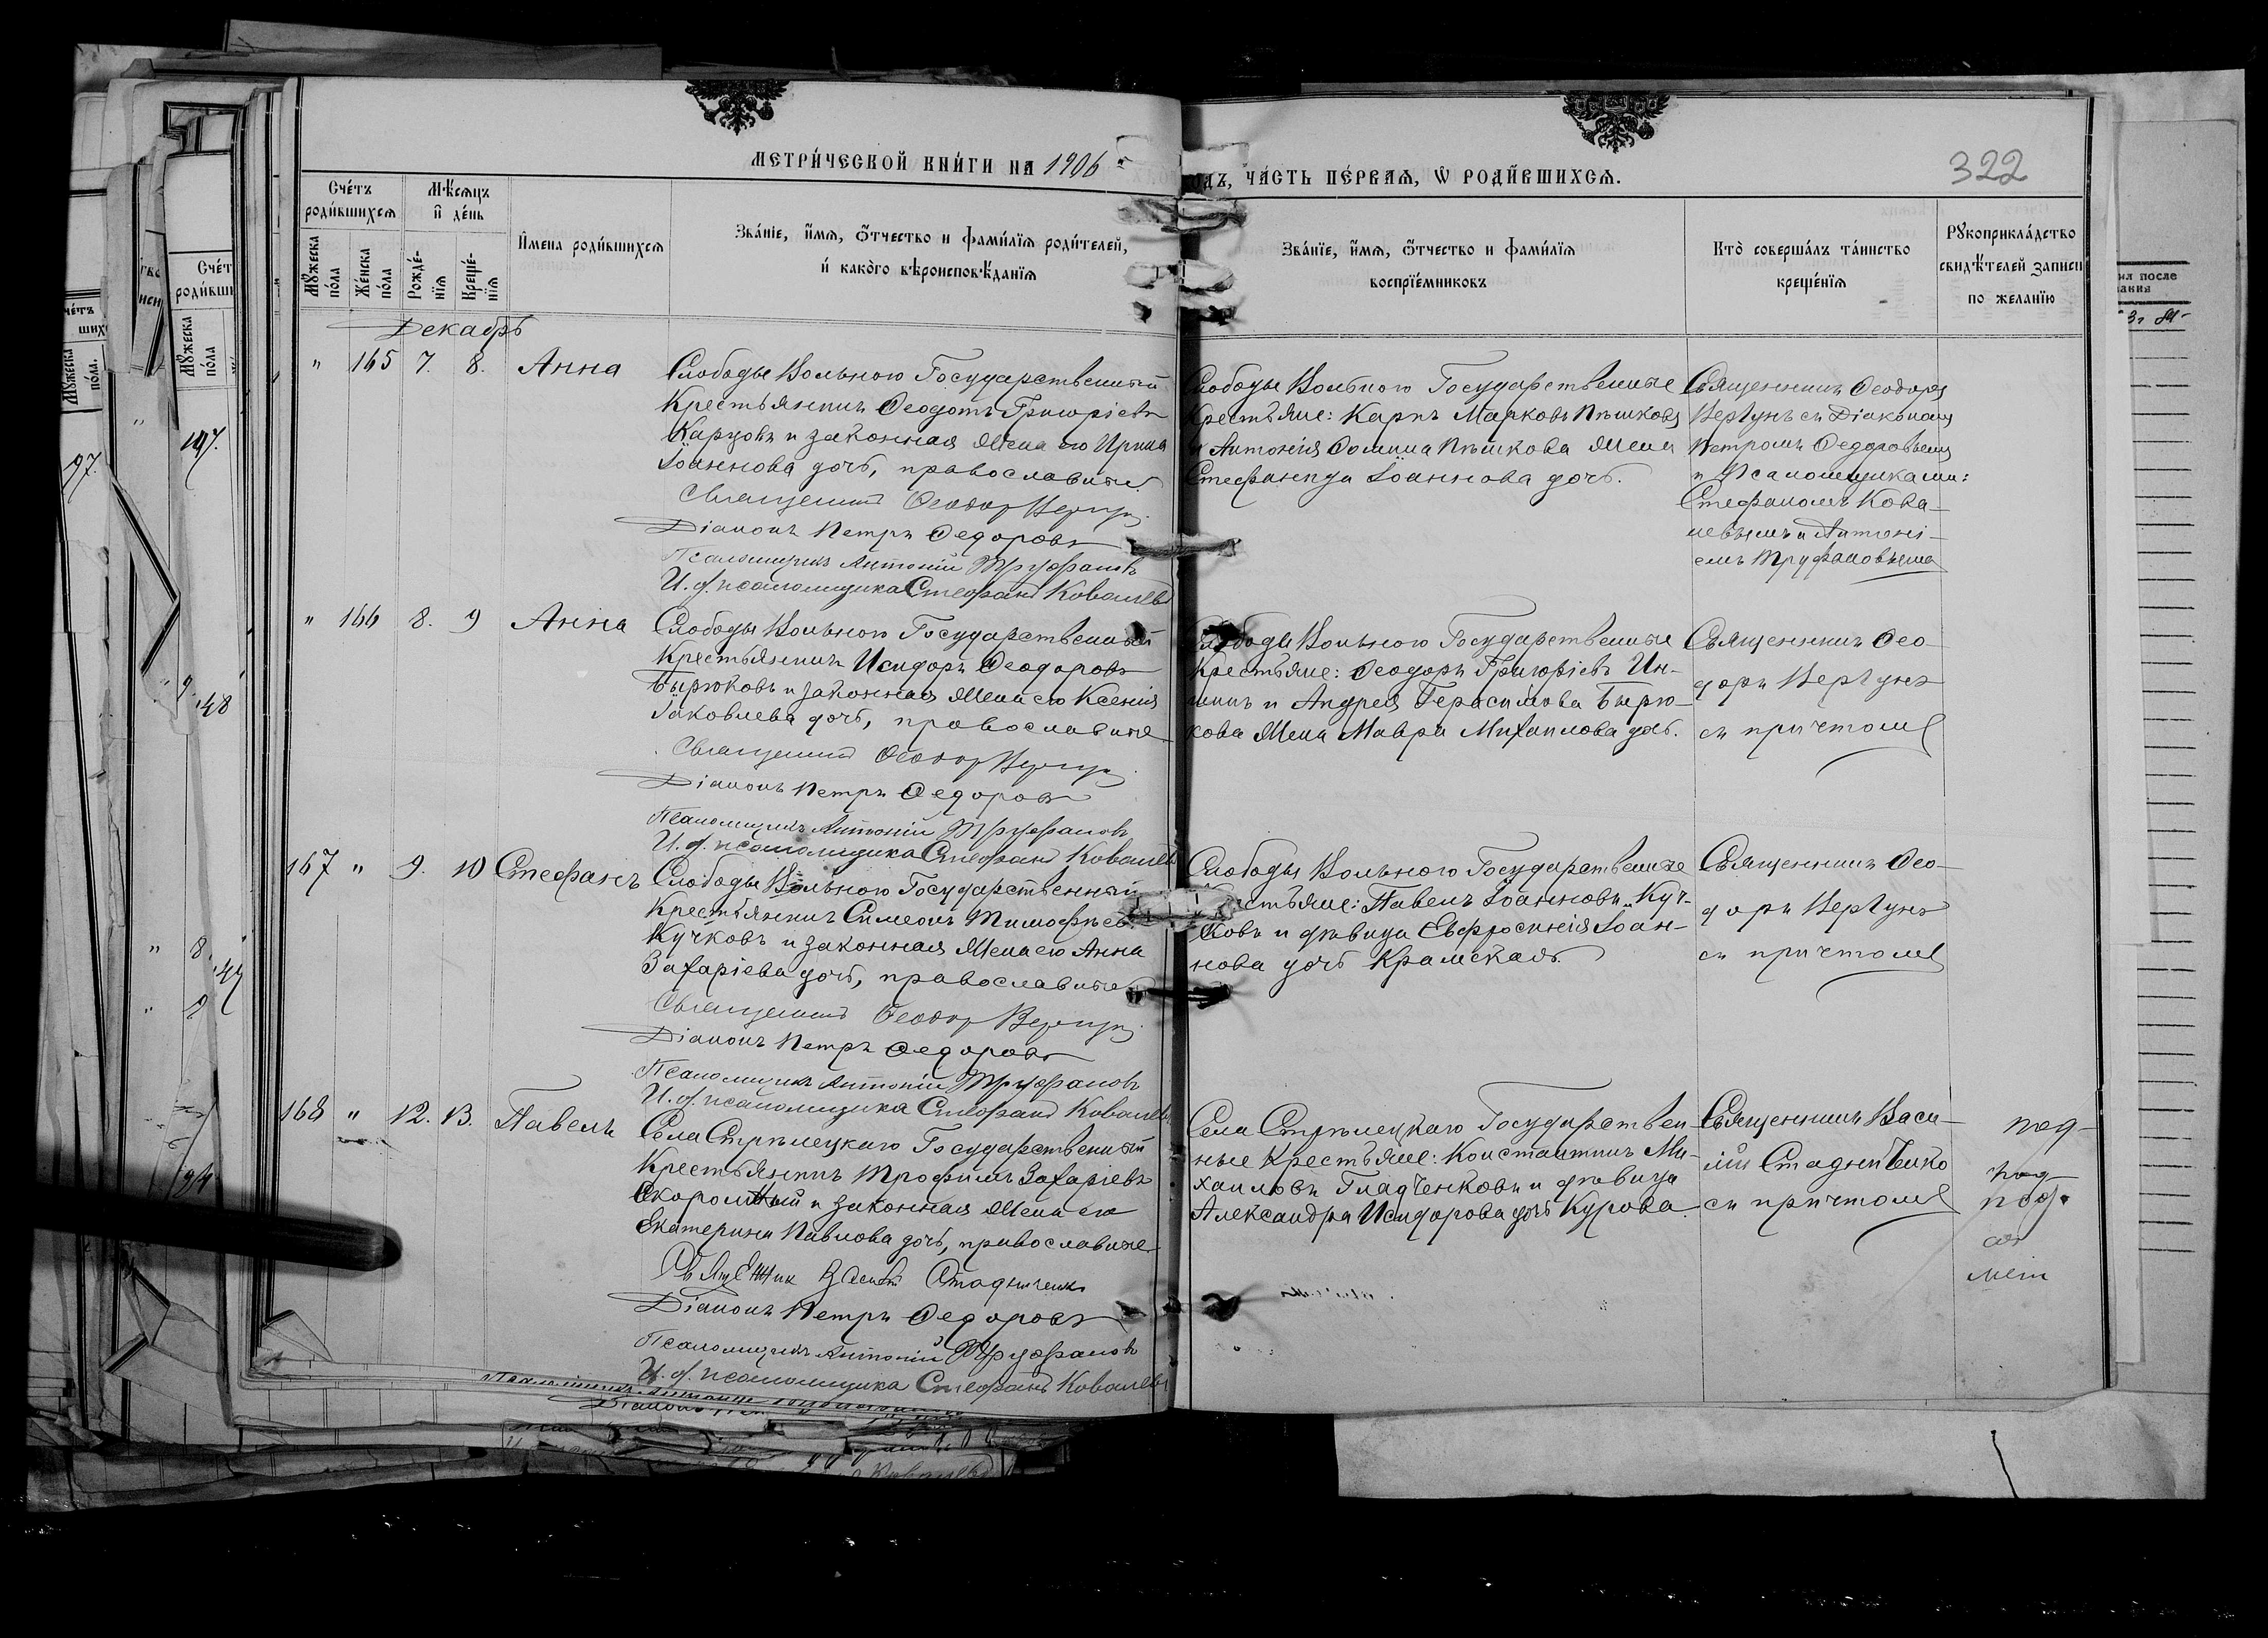 МЕТРИ́ЧЕСКОЙ КНИ́ГИ НА 1906
ОДЪ, ЧА́СТЬ ПЕ́РВАѦ, Ѡ РОДИ́ВШИХСѦ.
322
Сче́тъ роди́вшихсѧ
Мѣ́сѧцъ и де́нь
И́мена роди́вшихсѧ
Зва́нїе, и́мѧ, ѻ́тчество и фами́лїѧ роди́телей,
и́ како́го вѣроисповѣ́данїѧ
Мꙋ́жеска по́ла
Же́нска по́ла
Рожде́нїѧ
Креще́нїѧ
Зва́нїе, и́мѧ, ѻ́тчество и фами́лїѧ
воспрїе́мниковъ
Кто̀ соверша́лъ та́инство
креще́нїѧ
Рꙋкоприкла́дство
свидѣ́телей записи
по жела́нїю
Декабрь
" 165 7. 8. Анна
Слободы Вольного Государственный
Крестьянинъ Ѳеодотъ Григоріевъ
Карповъ и законная жена его Ирина
Іоаннова дочь, православные.
Священникъ Ѳеодоръ Вергунъ
Діаконъ Петръ Ѳедоровъ
Псаломщикъ Антоній Труфановъ
И. д. псаломщика Стефанъ Ковалевъ
Слободы Вольного Государственные
Крестьяне: Карпъ Марковъ Пѣшковъ
и Антонія Ѳомина Пѣшкова жена
Стефанида Іоаннова дочь.
Священникъ Ѳеодоръ
Вергунъ съ Діакономъ
Петромъ Ѳедоровымъ
и Псаломщиками:
Стефаномъ Кова-
левымъ и Антоні-
емъ Труфановымъ
" 166 8. 9 Анна
Слободы Вольного Государственный
Крестьянинъ Исидоръ Ѳеодоровъ
Бирюковъ и законная жена его Ксенія
Іаковлева дочь, православные
Священникъ Ѳеодоръ Вергунъ
Діаконъ Петръ Ѳедоровъ
Псаломщикъ Антоній Труфановъ
И. д. псаломщика Стефанъ Ковалевъ
Слободы Вольного Государственные
Крестьяне: Ѳеодоръ Григоріевъ Ин-
шинъ и Андрея Герасимова Бирю-
кова жена Мавра Михаилова дочь.
Священникъ Ѳео-
доръ Вергунъ
съ причтомъ
167 " 9. 10 Стефанъ
Слободы Вольного Государственный
Крестьянинъ Симеонъ Тимофѣевъ
Кучковъ и законная жена его Анна
Захаріева дочь, православные
Священникъ Ѳеодоръ Вергунъ
Діаконъ Петръ Ѳедоровъ
Псаломщикъ Антоній Труфановъ
И. д. псаломщика Стефанъ Ковалевъ
Слободы Вольного Государственные
Крестьяне: Павелъ Іоанновъ Куч-
ковъ и дѣвица Евфросинія Іоан-
нова дочь Крамская.
Священникъ Ѳео-
доръ Вергунъ
съ причтомъ
168 " 12. 13. Павелъ
Села Стрѣлецкаго Государственный
Крестьянинъ Трофимъ Захаріевъ
Скоромный и законная жена его
Екатерина Павлова дочь, православные
Священник Василій Стадниченко
Діаконъ Петръ Ѳедоровъ
Псаломщикъ Антоній Труфановъ
И. д. псаломщика Стефанъ Ковалевъ
Села Стрѣлецкаго Государствен-
ные Крестьяне: Константинъ Ми-
хаиловъ Гладченковъ и дѣвица
Александра Исидорова дочь Курова.
Священникъ Васи-
лій Стадниченко
съ причтомъ